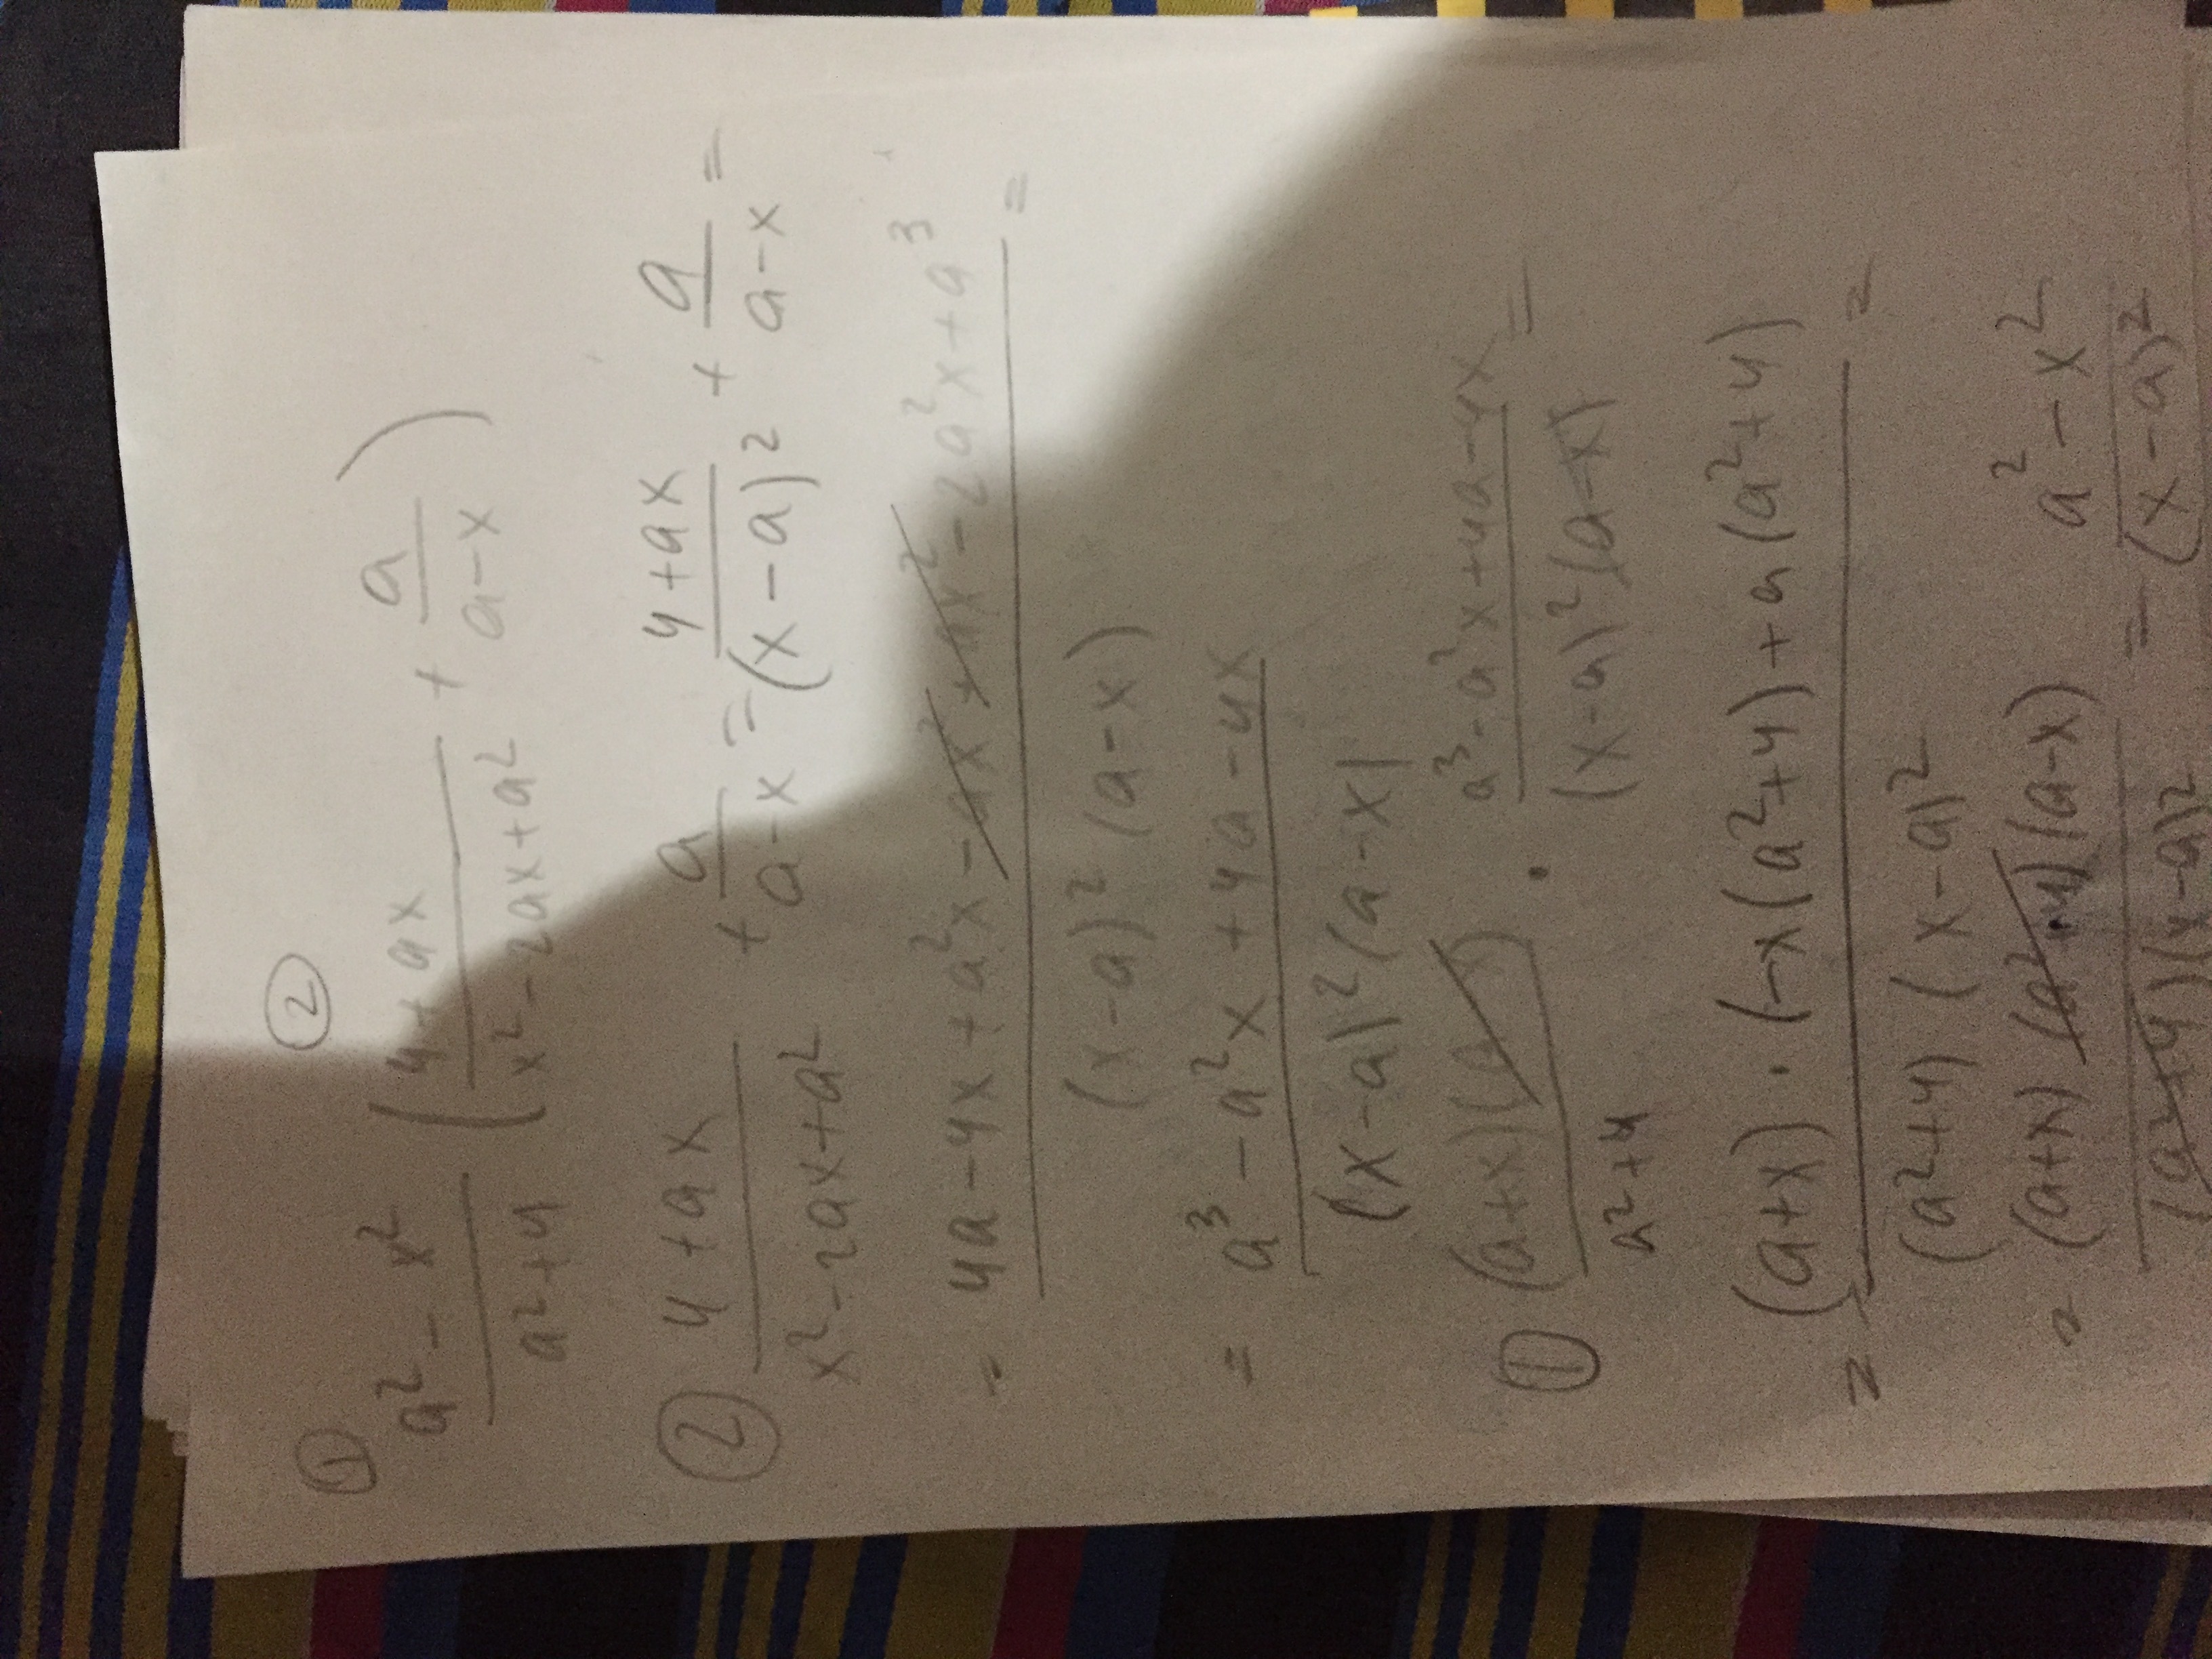 ① ②
a² - x² / a² + 4 ( 4 + ax / x² - 2ax + a² + a / a - x )
② 4 + ax / x² - 2ax + a² + a / a - x = 4 + ax / (x - a)² + a / a - x =
= 4a - 4x + a²x - ax² + ax² - 2a²x + a³ / (x - a)² (a - x) =
= a³ - a²x + 4a - 4x / (x - a)² (a - x)
① (a+x)(a-x) / a² + 4 · a³ - a²x + 4a - 4x / (x - a)² (a - x) =
= (a+x) · (-x(a² + 4) + a(a² + 4) / (a² + 4) (x - a)² =
= (a+x) (a² + 4) (a - x) / (a² + 4) (x - a)² = a² - x² / (x - a)²